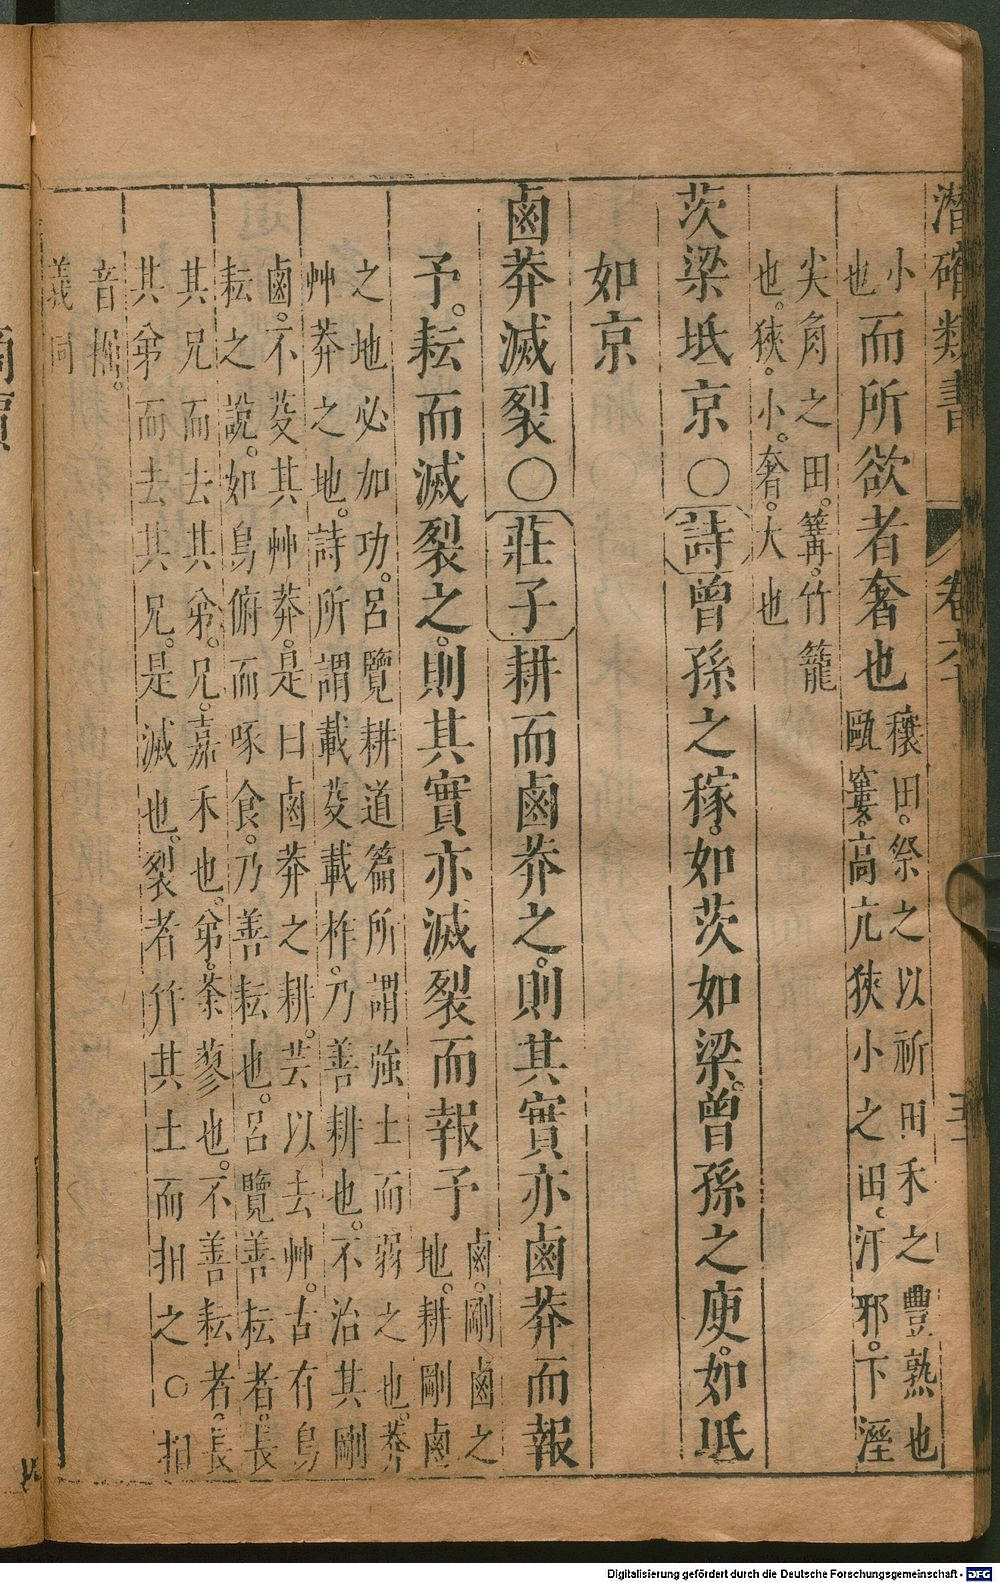 潛確類書 卷六十 五
小
也
而所欲者奢也
穰田。祭之以祈田禾之豐熟也
甌窶。高亢狹小之田。汙邪。下溼
尖角之田。篝。竹籠
也。狹。小。奢。大也
茨梁坻京○詩曾孫之稼。如茨如梁。曾孫之庾。如坻
如京
鹵莽滅裂○莊子耕而鹵莽之。則其實亦鹵莽而報
予。耘而滅裂之。則其實亦滅裂而報予
鹵。剛鹵之
地。耕剛鹵
之地必加功。呂覽耕道篇所謂強土而弱之也。莽
艸莽之地。詩所謂載芟載柞。乃善耕也。不治其剛
鹵。不芟其艸莽。是曰鹵莽之耕。芸以去艸。古有鳥
耘之說。如鳥俯而啄食。乃善耘也。呂覽善耘者。長
其兄而去其弟。兄。嘉禾也。弟。荼蓼也。不善耘者。長
其弟而去其兄。是滅也。裂者其土而抇之。○抇
音搰。
義同